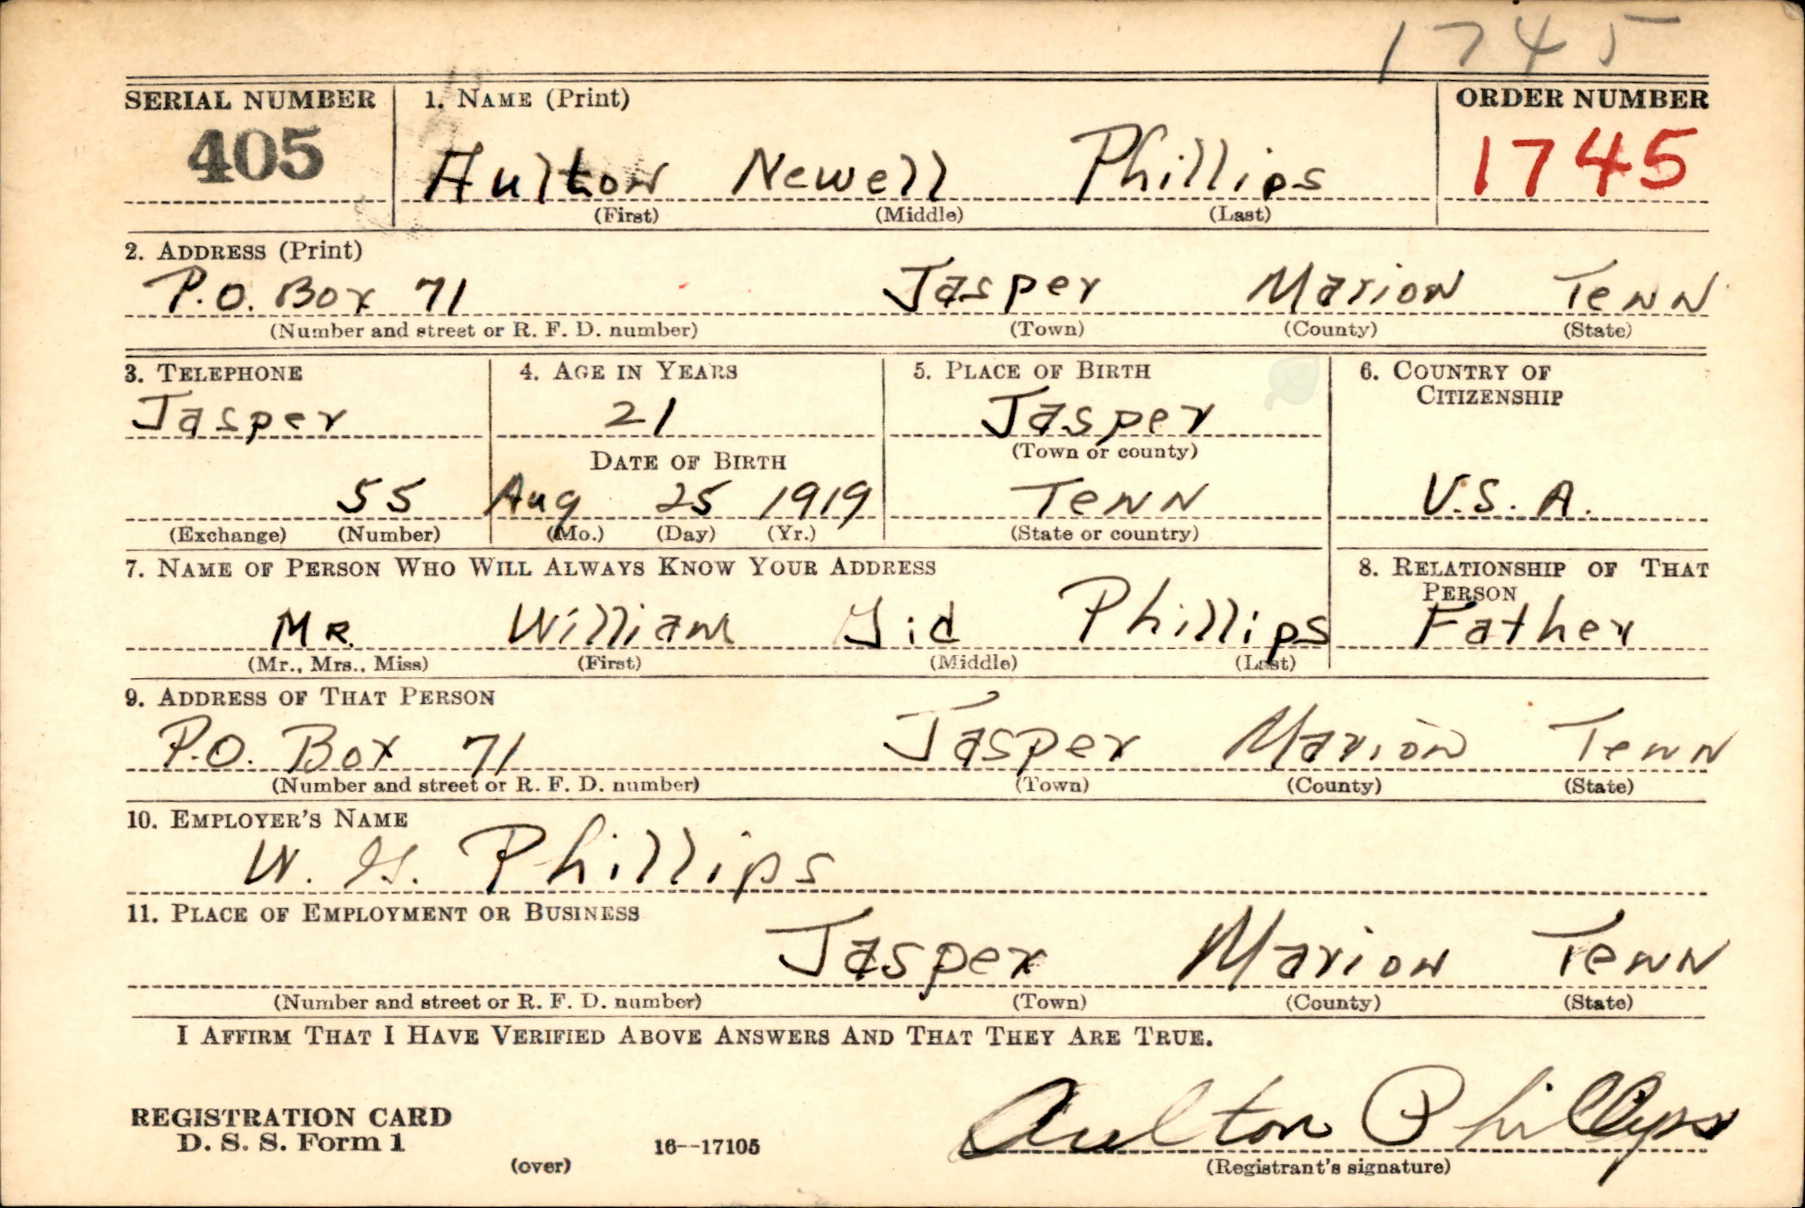 1745
SERIAL NUMBER 1. NAME (Print) ORDER NUMBER
405 Aulton Newell Phillips 1745
(First) (Middle) (Last)
2. ADDRESS (Print)
P.O. Box 71 Jasper Marion Tenn
(Number and street or R. F. D. number) (Town) (County) (State)
3. TELEPHONE 4. AGE IN YEARS 5. PLACE OF BIRTH 6. COUNTRY OF
CITIZENSHIP
Jasper 21 Jasper
(Town or county)
DATE OF BIRTH
55 Aug 25 1919 Tenn U.S.A.
(Exchange) (Number) (Mo.) (Day) (Yr.) (State or country)
7. NAME OF PERSON WHO WILL ALWAYS KNOW YOUR ADDRESS 8. RELATIONSHIP OF THAT
PERSON
MR. William Gid Phillips Father
(Mr., Mrs., Miss) (First) (Middle) (Last)
9. ADDRESS OF THAT PERSON
P.O. Box 71 Jasper Marion Tenn
(Number and street or R. F. D. number) (Town) (County) (State)
10. EMPLOYER'S NAME
W. G. Phillips
11. PLACE OF EMPLOYMENT OR BUSINESS
Jasper Marion Tenn
(Number and street or R. F. D. number) (Town) (County) (State)
I AFFIRM THAT I HAVE VERIFIED ABOVE ANSWERS AND THAT THEY ARE TRUE.
REGISTRATION CARD
D. S. S. Form 1 16--17105 Aulton Phillips
(over) (Registrant's signature)